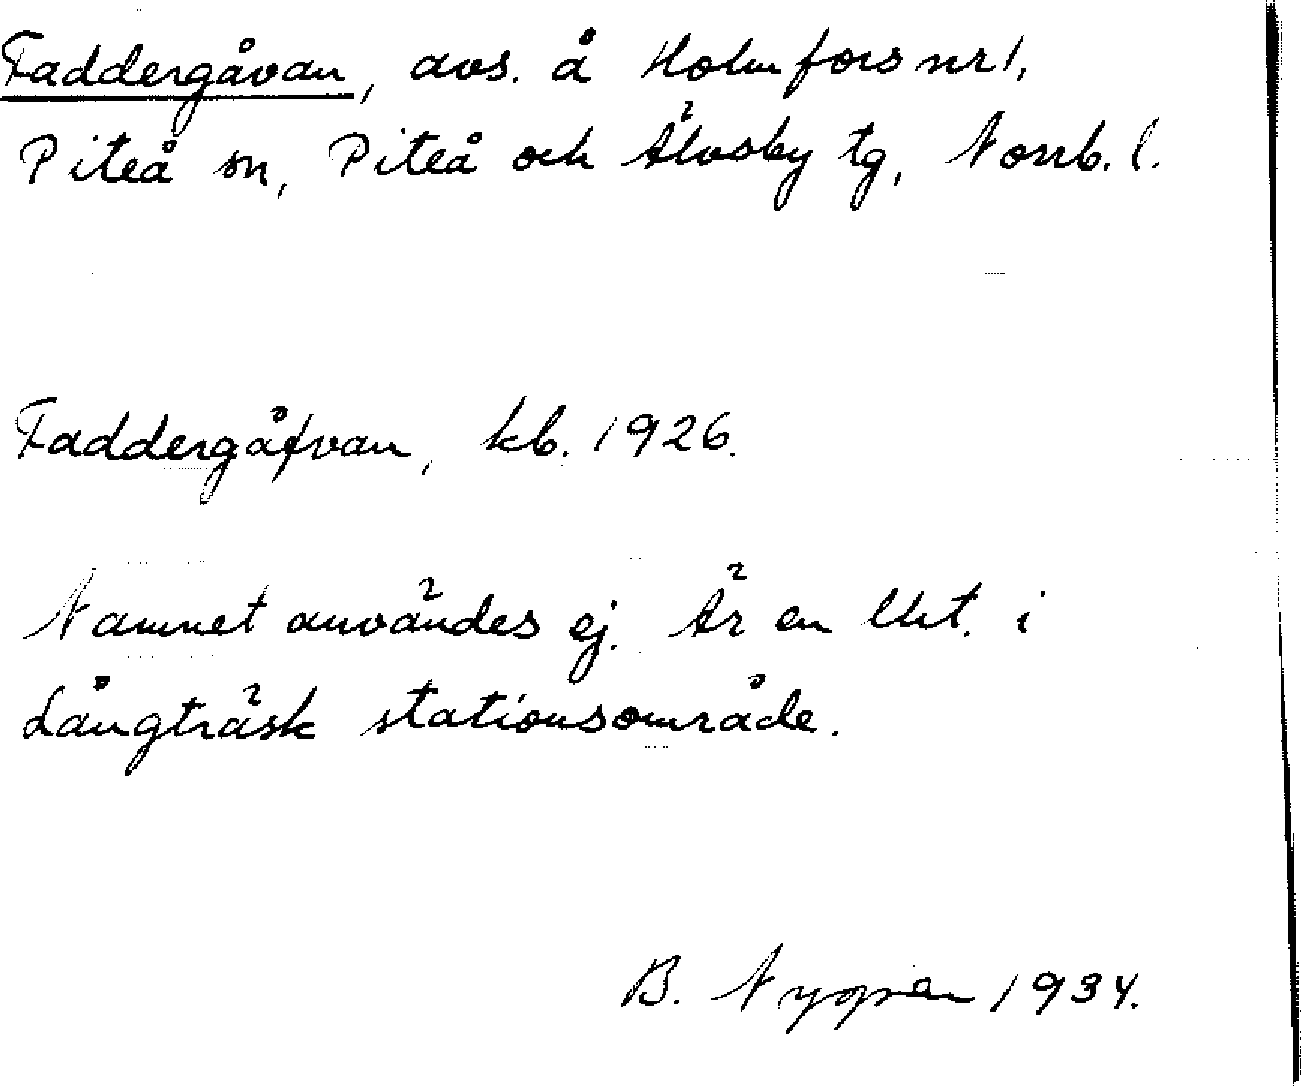 Faddergåvan, avs. å Holmfors nr 1,
Piteå sn, Piteå och Älvsby tg, Norrb. l.
Faddergåfvan, kb. 1926.
Namnet användes ej. Är en lht. i
Långträsk stationsområde.
B. Nygren 1934.